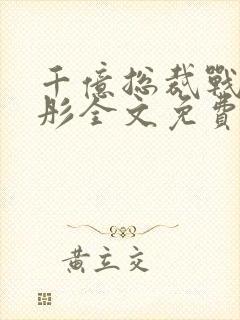 千億總裁戰
彤全文免費
黃立交